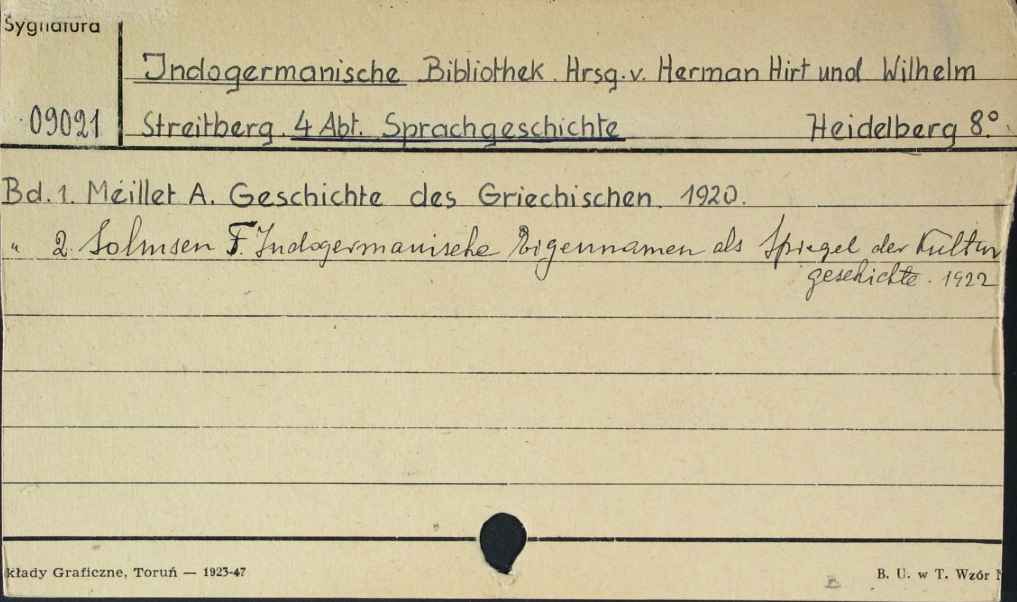 Sygnatura
Indogermanische Bibliothek. Hrsg. v. Herman Hirt und Wilhelm
09021 Streitberg. 4 Abt. Sprachgeschichte Heidelberg 8°.
Bd. 1. Meillet A. Geschichte des Griechischen. 1920.
" 2. Solmsen F. Indogermanische Eigennamen als Spiegel der Kultur
geschichte. 1922
kłady Graficzne, Toruń — 1923-47
B. U. w T. Wzór